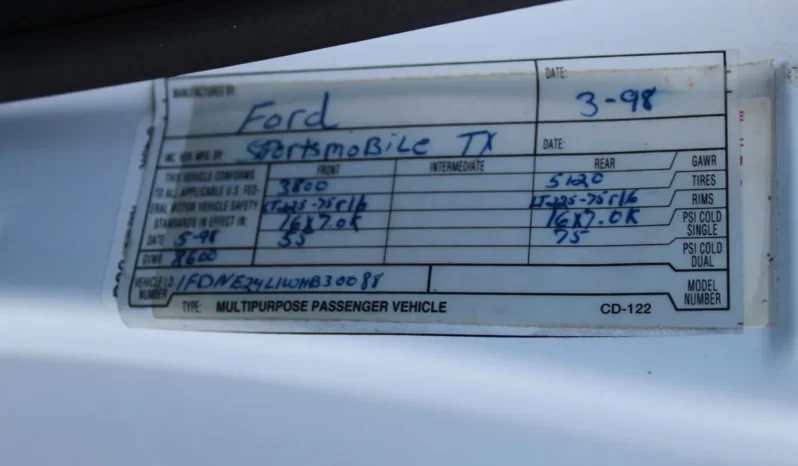 MANUFACTURED BY: Ford DATE: 3-98
INC. VEH. MFG. BY: SPORTSMOBILE TX DATE:
THIS VEHICLE CONFORMS FRONT INTERMEDIATE REAR GAWR
TO ALL APPLICABLE U.S. FED- 3800 5120 TIRES
ERAL MOTOR VEHICLE SAFETY LT225-75r16 LT225-75r16 RIMS
STANDARDS IN EFFECT IN: 16X7.0K 16X7.0K PSI COLD SINGLE
DATE 5-98 55 75 PSI COLD DUAL
GVWR 8600
VEHICLE I.D. NUMBER 1FDNE24L1WHB30088 MODEL NUMBER
TYPE: MULTIPURPOSE PASSENGER VEHICLE CD-122